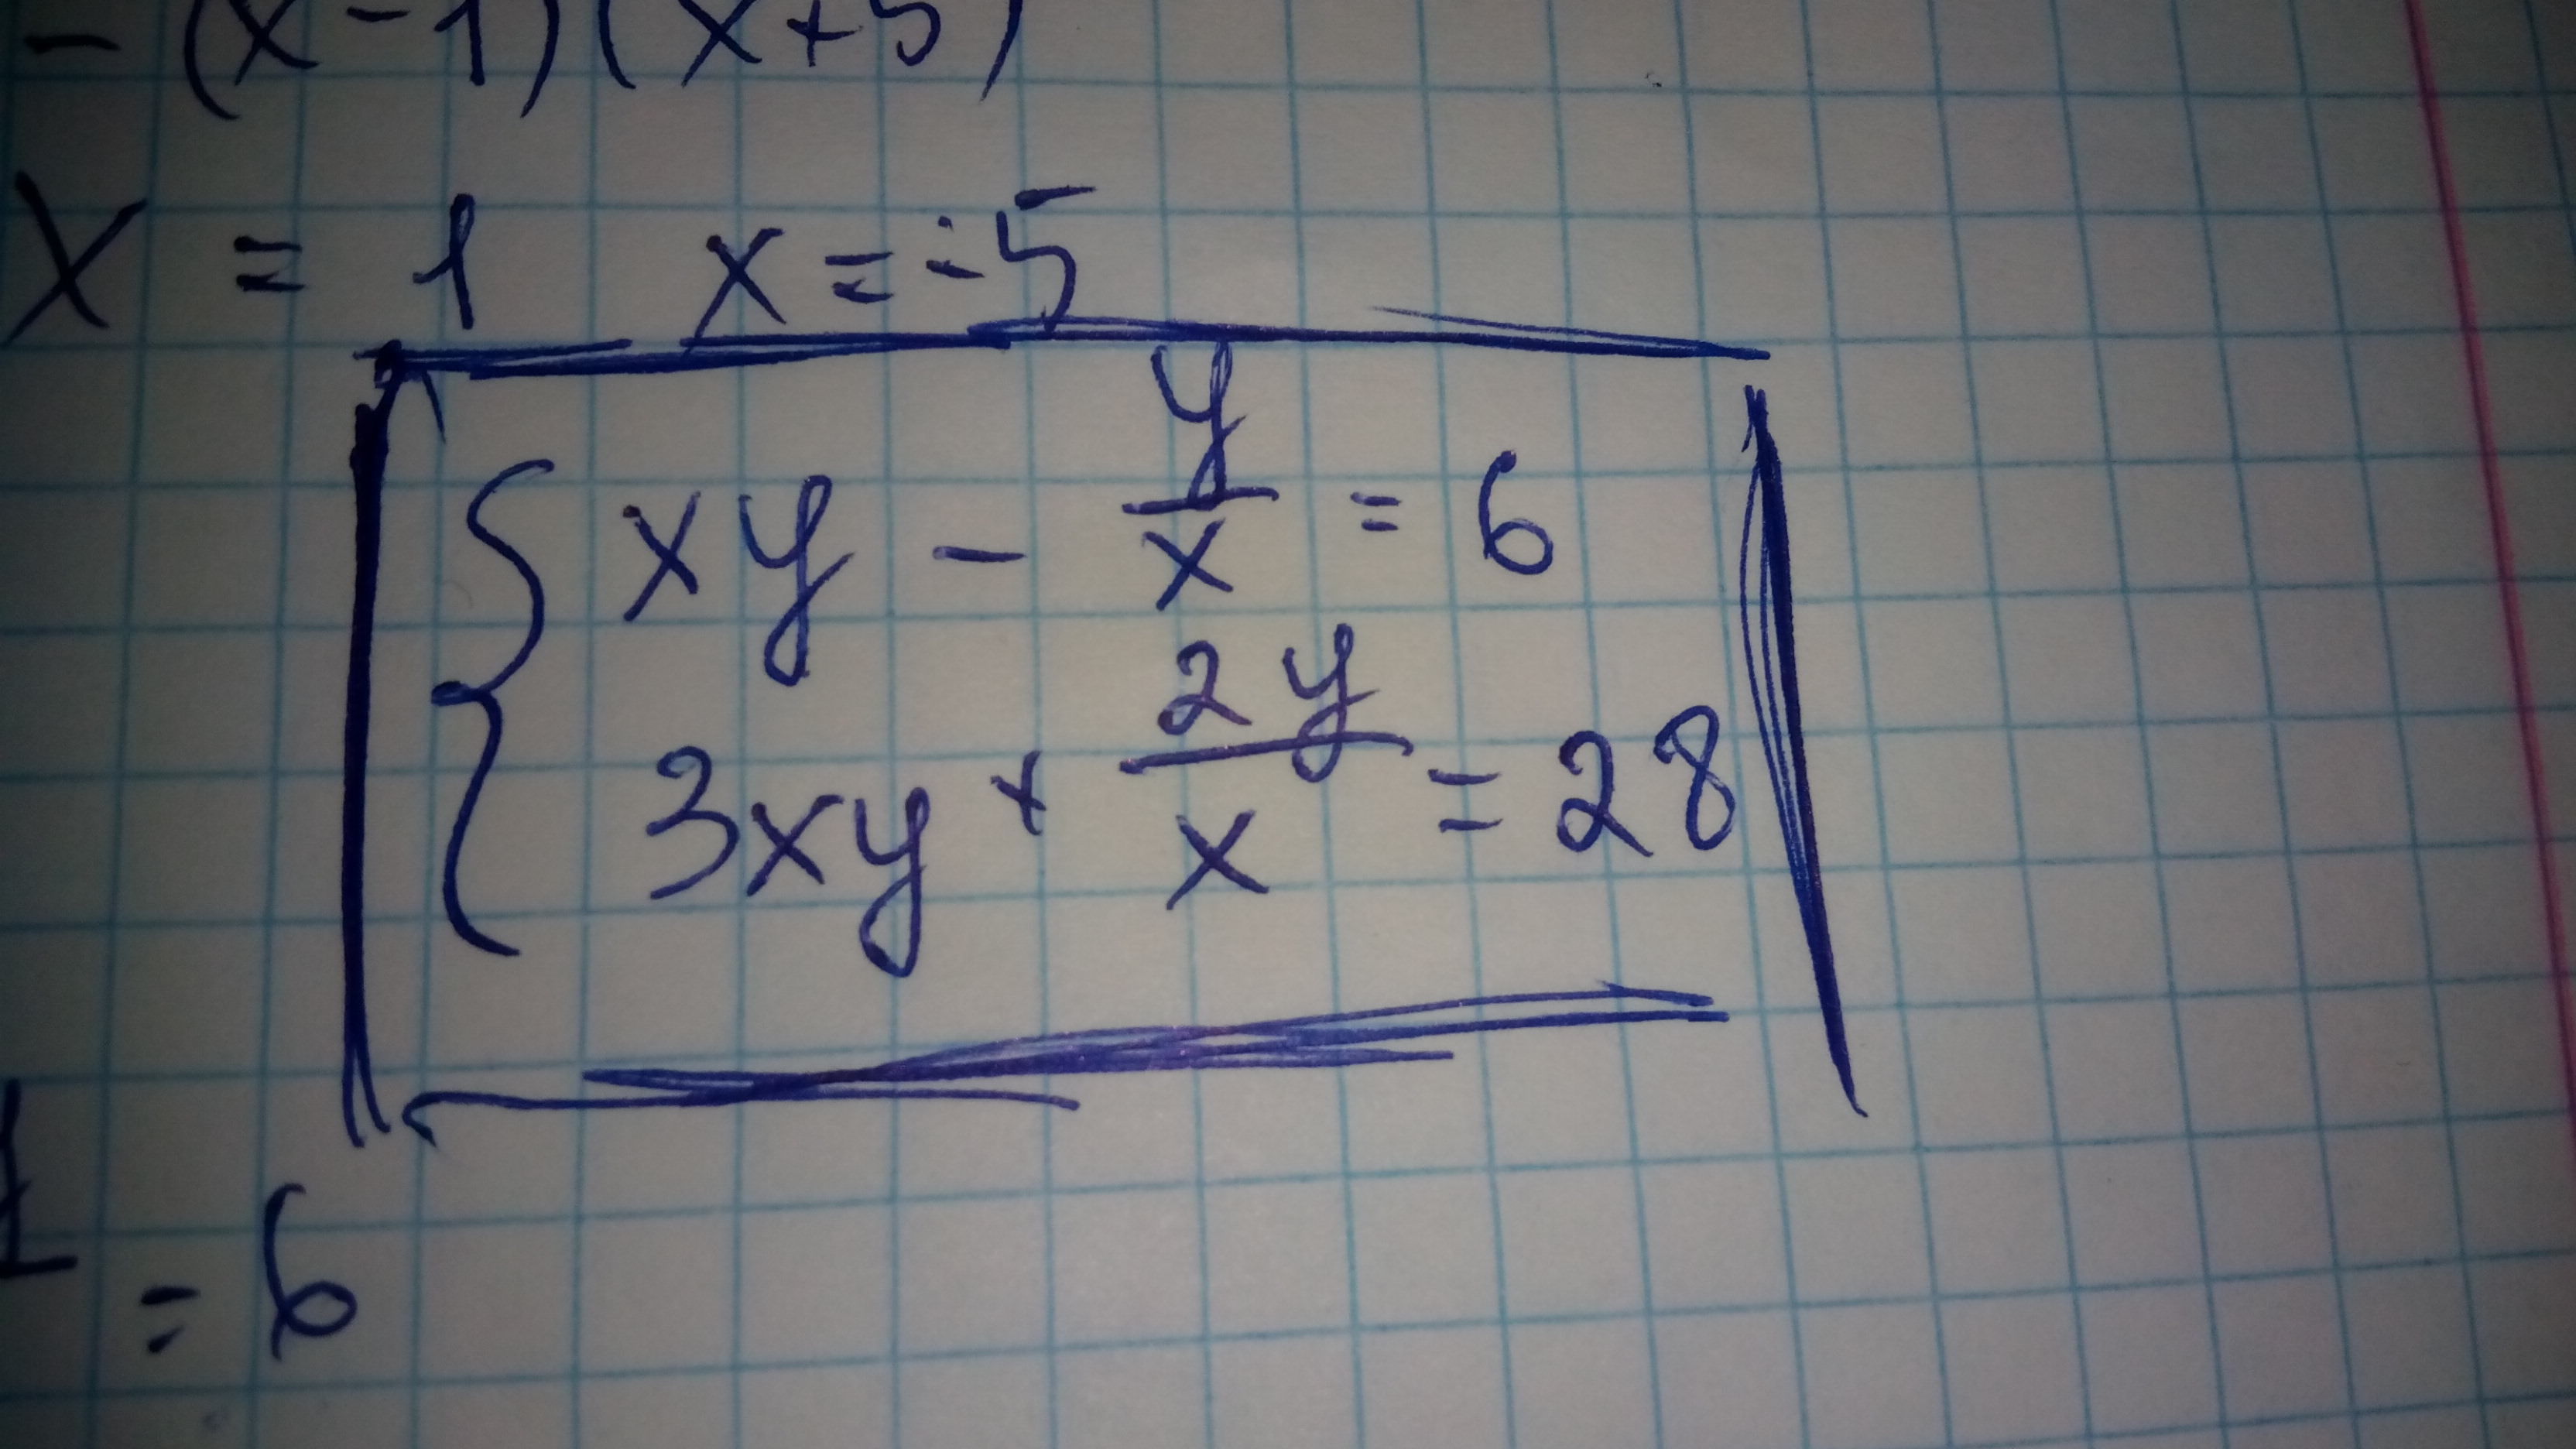 - (x-1)(x+5)
x = 1 x = -5
xy - y/x = 6
3xy + 2y/x = 28
= 6